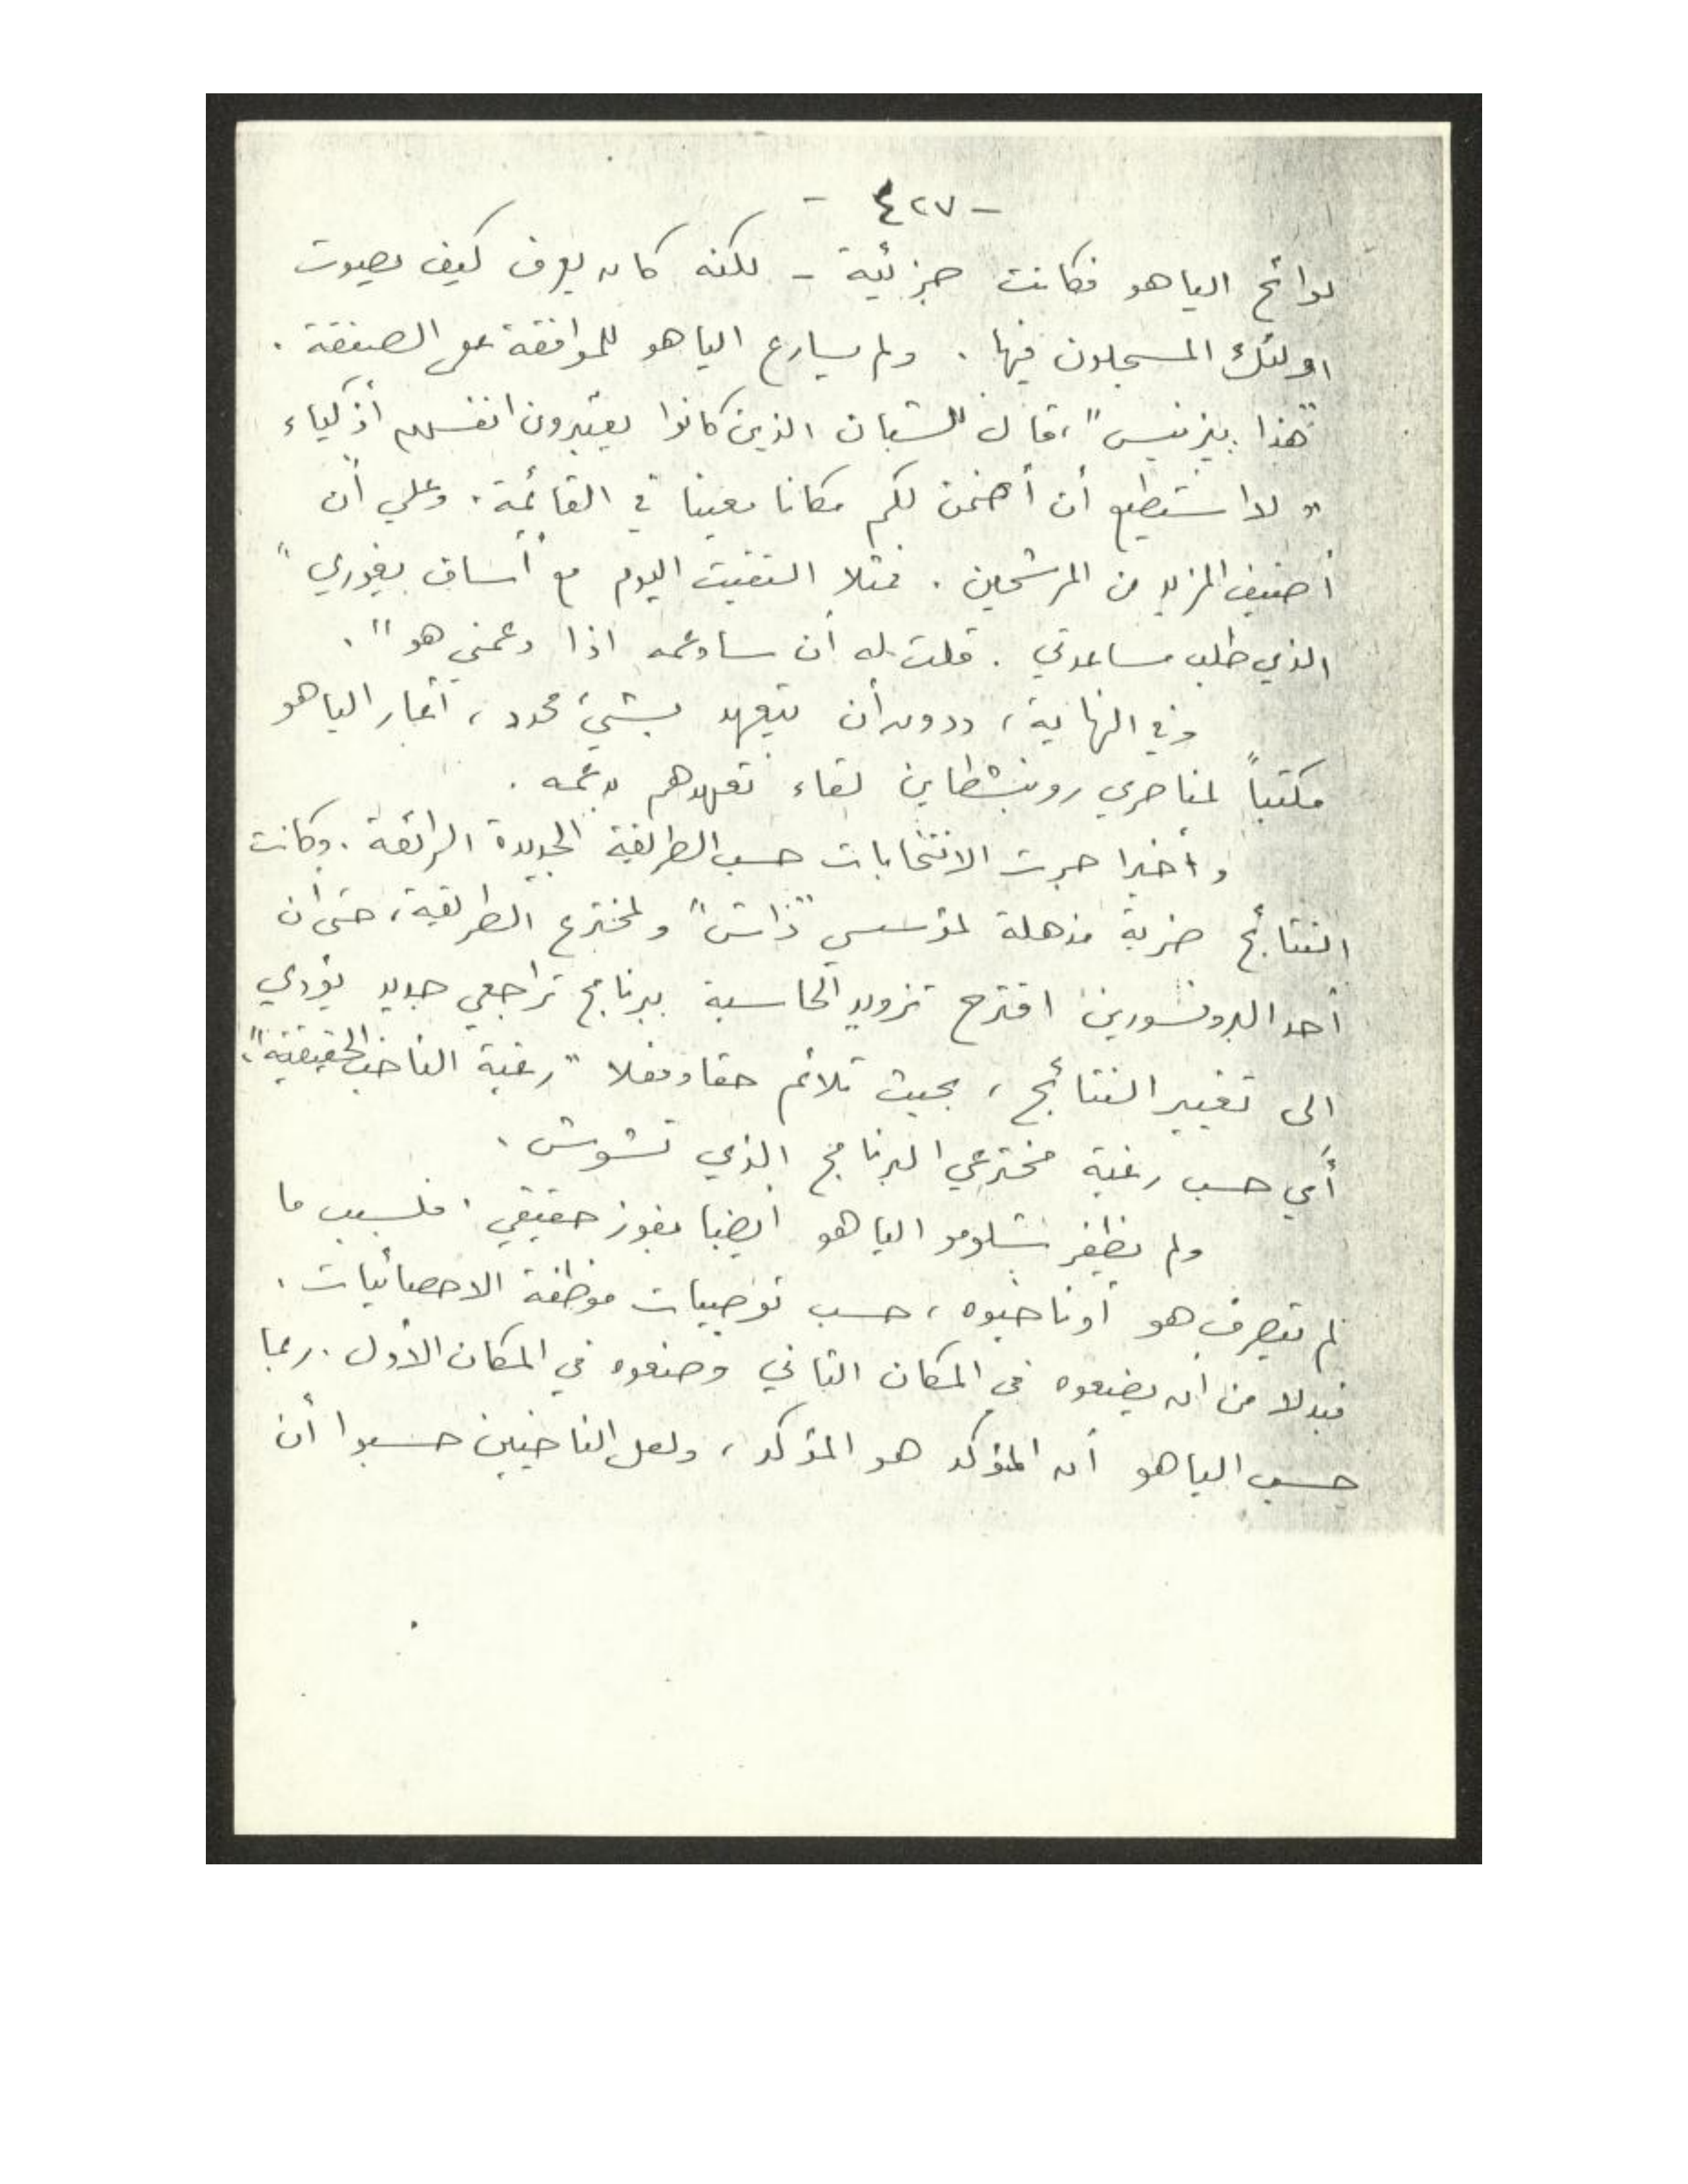 - ٤٢٧ -
لوائح الياهو فكانت جزئية - لكنه كان يعرف كيف يصوت
اولئك المسجلون فيها . ولم يسارع الياهو للموافقة على الصفقة .
"هذا بيزنيس"، قال للشبان الذين كانوا يعتبرون انفسهم أذكياء
" لا استطيع أن أضمن لكم مكانا معينا في القائمة . وعلي أن
أضيف المزيد من المرشحين . فمثلا التقيت اليوم مع "أساف يغوري"
الذي طلب مساعدتي . قلت له أن سادعمه اذا دعمني هو " .
وفي النهاية ، ودون أن يتعهد بشيء محدد ، أعار الياهو
مكتباً لمناصري روبنشطاين لقاء تعهدهم بدعمه .
وأخيرا جرت الانتخابات حسب الطريقة الجديدة الرائعة . وكانت
النتائج ضربة مذهلة لمؤسسي "داش" ولمخترع الطريقة ، حتى أن
أحد البروفسورين اقترح تزويد الحاسبة ببرنامج تراجعي جديد يؤدي
الى تغيير النتائج ، بحيث تلائم حقا وفعلا "رغبة الناخب الحقيقية" ،
أي حسب رغبة مخترعي البرنامج الذي تشوش .
ولم يظفر شلومو الياهو أيضا بفوز حقيقي . فلسبب ما
لم يتصرف هو أو ناخبوه ، حسب توصيات موظفة الاحصائيات .
فبدلا من ان يضعوه في المكان الثاني وضعوه في المكان الأول . ربما
حسب الياهو أن المؤكد هو المؤكد ، ولعل الناخبين حسبوا أن